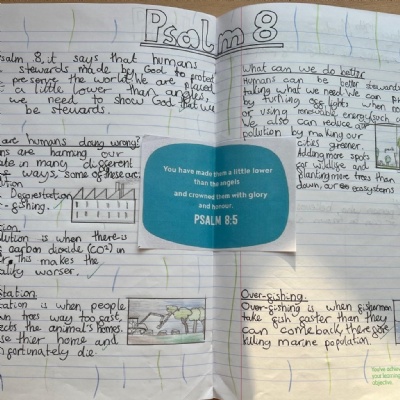 Psalm 8
Psalm, 8, it says that humans
stewards made by God to protect
preserve the world. We are placed
a little lower than angles,
we need to show God that we
be stewards.
are humans doing wrong?
are harming our
in many different
ways, some of these are:
Deforestation
-fishing.
is when there is
carbon dioxide (CO2) in
This makes the
worser.
is when people
trees way too fast,
the animal's homes.
their home and
unfortunately die.
You have made them a little lower
than the angels
and crowned them with glory
and honour.
PSALM 8:5
What can we do better
Humans can be better stewards
taking what we need. We can
by turning off lights when
or using renewable energy (such
We also can reduce air
pollution by making our
cities greener.
Adding more spots
for wildlife and
planting more trees than
down, our ecosystems
Over-fishing.
Over-fishing is when fishermen
take fish faster than they
can comeback, therefore
killing marine population.
You've achieved
your learning
objective.